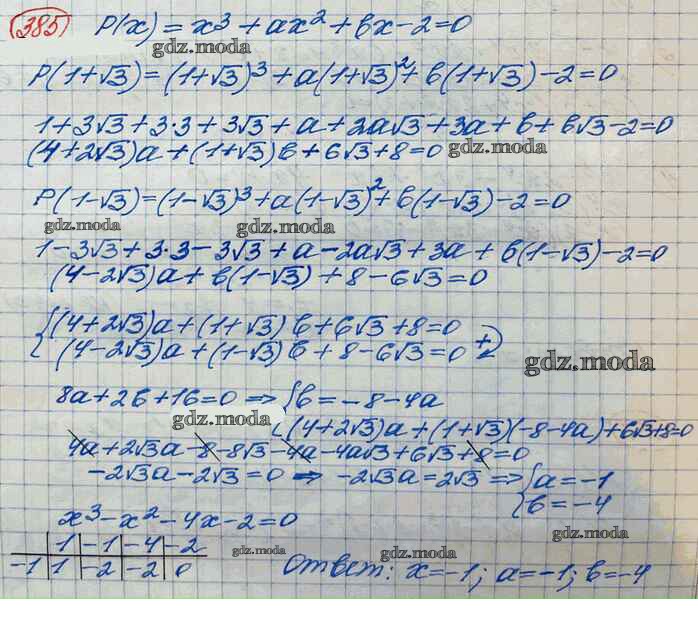 385 P(x) = x³ + ax² + bx - 2 = 0
gdz.moda
P(1+√3) = (1+√3)³ + a(1+√3)² + b(1+√3) - 2 = 0
1 + 3√3 + 3·3 + 3√3 + a + 2a√3 + 3a + b + b√3 - 2 = 0
(4+2√3)a + (1+√3)b + 6√3 + 8 = 0 gdz.moda
P(1-√3) = (1-√3)³ + a(1-√3)² + b(1-√3) - 2 = 0
gdz.moda gdz.moda
1 - 3√3 + 3·3 - 3√3 + a - 2a√3 + 3a + b(1-√3) - 2 = 0
(4-2√3)a + b(1-√3) + 8 - 6√3 = 0
{(4+2√3)a + (1+√3)b + 6√3 + 8 = 0
(4-2√3)a + (1-√3)b + 8 - 6√3 = 0 +
gdz.moda
8a + 2b + 16 = 0 => {b = -8 - 4a
gdz.moda (4+2√3)a + (1+√3)(-8-4a) + 6√3 + 8 = 0
4a + 2√3a - 8 - 8√3 - 4a - 4a√3 + 6√3 + 8 = 0
-2√3a - 2√3 = 0 => -2√3a = 2√3 => {a = -1
b = -4
gdz.moda
x³ - x² - 4x - 2 = 0
gdz.moda
1 -1 -4 -2
-1 1 -2 -2 0
gdz.moda gdz.moda
Ответ: x = -1; a = -1; b = -4